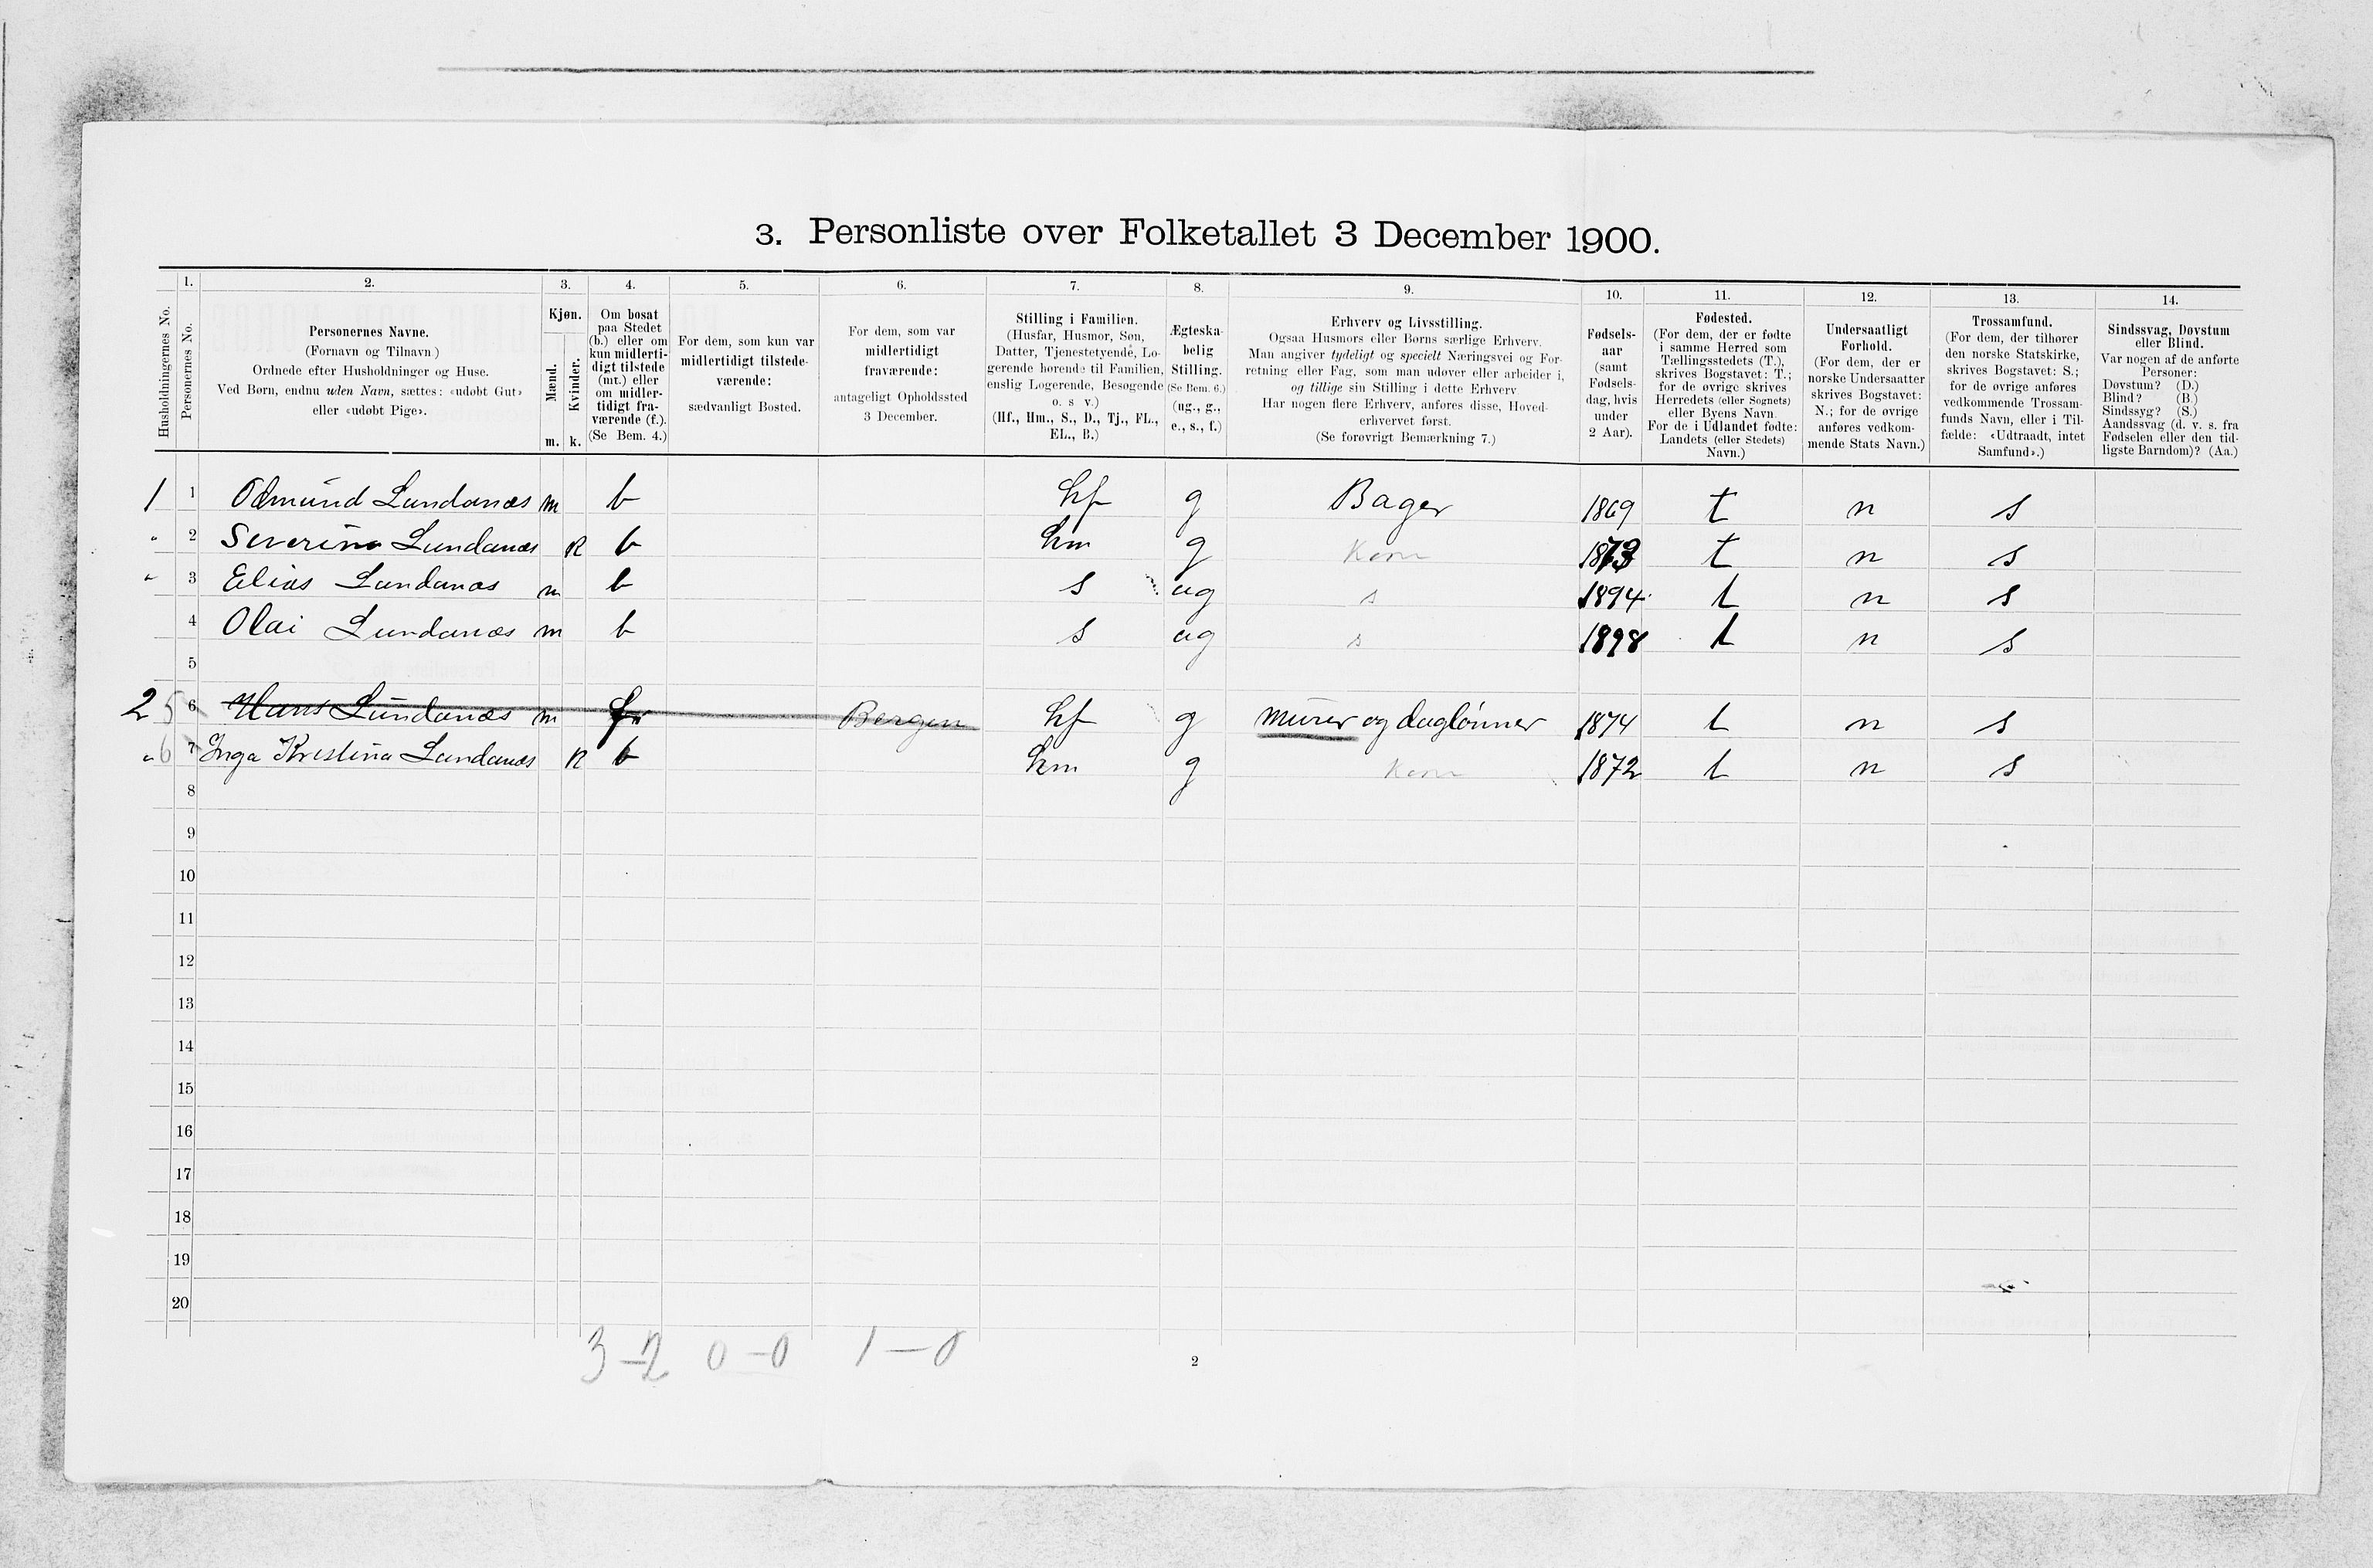 3. Personliste over Folketallet 3 December 1900.
1. 2. 3. 4. 5. 6. 7. 8. 9. 10. 11. 12. 13. 14.
Husholdningernes No.
Personernes No.
Personernes Navne.
(Fornavn og Tilnavn.)
Ordnede efter Husholdninger og Huse.
Ved Børn, endnu uden Navn, sættes: «udøbt Gut»
eller «udøbt Pige».
Kjøn.
Mænd.
Kvinder.
m. k.
Om bosat
paa Stedet
(b.) eller om
kun midlerti-
digt tilstede
(mt.) eller
om midler-
tidigt fra-
værende (f.).
(Se Bem. 4.)
For dem, som kun var
midlertidigt tilstede-
værende:
sædvanligt Bosted.
For dem, som var
midlertidigt
fraværende:
antageligt Opholdssted
3 December.
Stilling i Familien.
(Husfar, Husmor, Søn,
Datter, Tjenestetyende, Lo-
gerende hørende til Familien,
enslig Logerende, Besøgende
o. s v.)
(Hf., Hm., S., D., Tj., FL.,
EL., B.)
Ægteska-
belig
Stilling.
(Se Bem. 6.)
(ug., g.,
e., s., f.)
Erhverv og Livsstilling.
Ogsaa Husmors eller Børns særlige Erhverv.
Man angiver tydeligt og specielt Næringsvei og For-
retning eller Fag, som man udøver eller arbeider i,
og tillige sin Stilling i dette Erhverv.
Har nogen flere Erhverv, anføres disse, Hoved-
erhvervet først.
(Se forøvrigt Bemærkning 7.)
Fødsels-
aar
(samt
Fødsels-
dag, hvis
under
2 Aar).
Fødested.
(For dem, der er fødte
i samme Herred som
Tællingsstedets (T.),
skrives Bogstavet: T.;
for de øvrige skrives
Herredets (eller Sognets)
eller Byens Navn.
For de i Udlandet fødte:
Landets (eller Stedets)
Navn.)
Undersaatligt
Forhold.
(For dem, der er
norske Undersaatter
skrives Bogstavet:
N.; for de øvrige
anføres vedkom-
mende Stats Navn.)
Trossamfund.
(For dem, der tilhører
den norske Statskirke,
skrives Bogstavet: S.;
for de øvrige anføres
vedkommende Trossam-
funds Navn, eller i Til-
fælde: «Udtraadt, intet
Samfund».)
Sindssvag, Døvstum
eller Blind.
Var nogen af de anførte
Personer:
Døvstum? (D.)
Blind? (B.)
Sindssyg? (S.)
Aandssvag (d. v. s. fra
Fødselen eller den tid-
ligste Barndom)? (Aa.)
1 1 Odmund Lundanæs m b hf g Bager 1869 t n s
" 2 Severine Lundanæs k b hm g Kone 1873 t n s
" 3 Elias Lundanæs m b s ug s 1894 t n s
4 Olai Lundanæs m b s ug s 1898 t n s
5
2 5 6 Hans Lundanæs m f Bergen hf g murer og daglønner 1874 t n s
" 6 7 Inga Kristina Lundanæs k b hm g Kone 1872 t n s
8
9
10
11
12
13
14
15
16
17
18
19
20
3-2 0-0 1-0
2